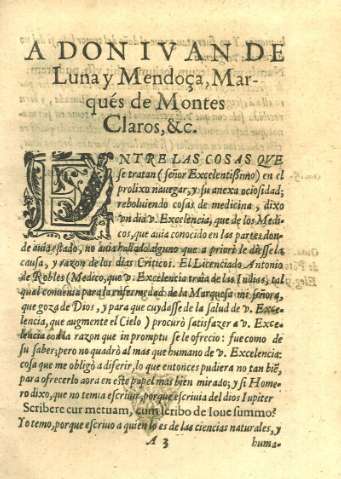 A DON IVAN DE
Luna y Mendoça, Mar-
qués de Montes
Claros, &c.
ENTRE LAS COSAS QVE
se tratan (señor Excelentissimo) en el
prolixo nauegar, y su anexa ociosidad;
reboluiendo cosas de medicina, dixo
vn dia v. Excelencia, que de los Medi-
cos, que auia conocido en las partes don-
de auia estado, no auia hallado alguno que a priori le diesse la
causa, y razon de los dias Criticos. El Licenciado Antonio
de Robles (Medico, que v. Excelencia traia de las Indias; tal
qual conuenia para la enfermedad de la Marquesa mi señora,
que goza de Dios, y para que cuydasse de la salud de v. Exce-
lencia, que augmente el Cielo) procurò satisfazer a v. Exce-
lencia con la razon que in promptu se le ofrecio: fue como de
su saber; pero no quadrò al mas que humano de v. Excelencia:
cosa que me obligò a diferir, lo que entonces pudiera no tan biẽ,
para ofrecerlo aora en este papel mas bien mirado; y si Home-
ro dixo, que no temia escriuir, porque escriuia del dios Iupiter
Scribere cur metuam, cum scribo de Ioue summo?
Yo temo, porque escriuo a quien lo es de las ciencias naturales, y
A 3 huma-